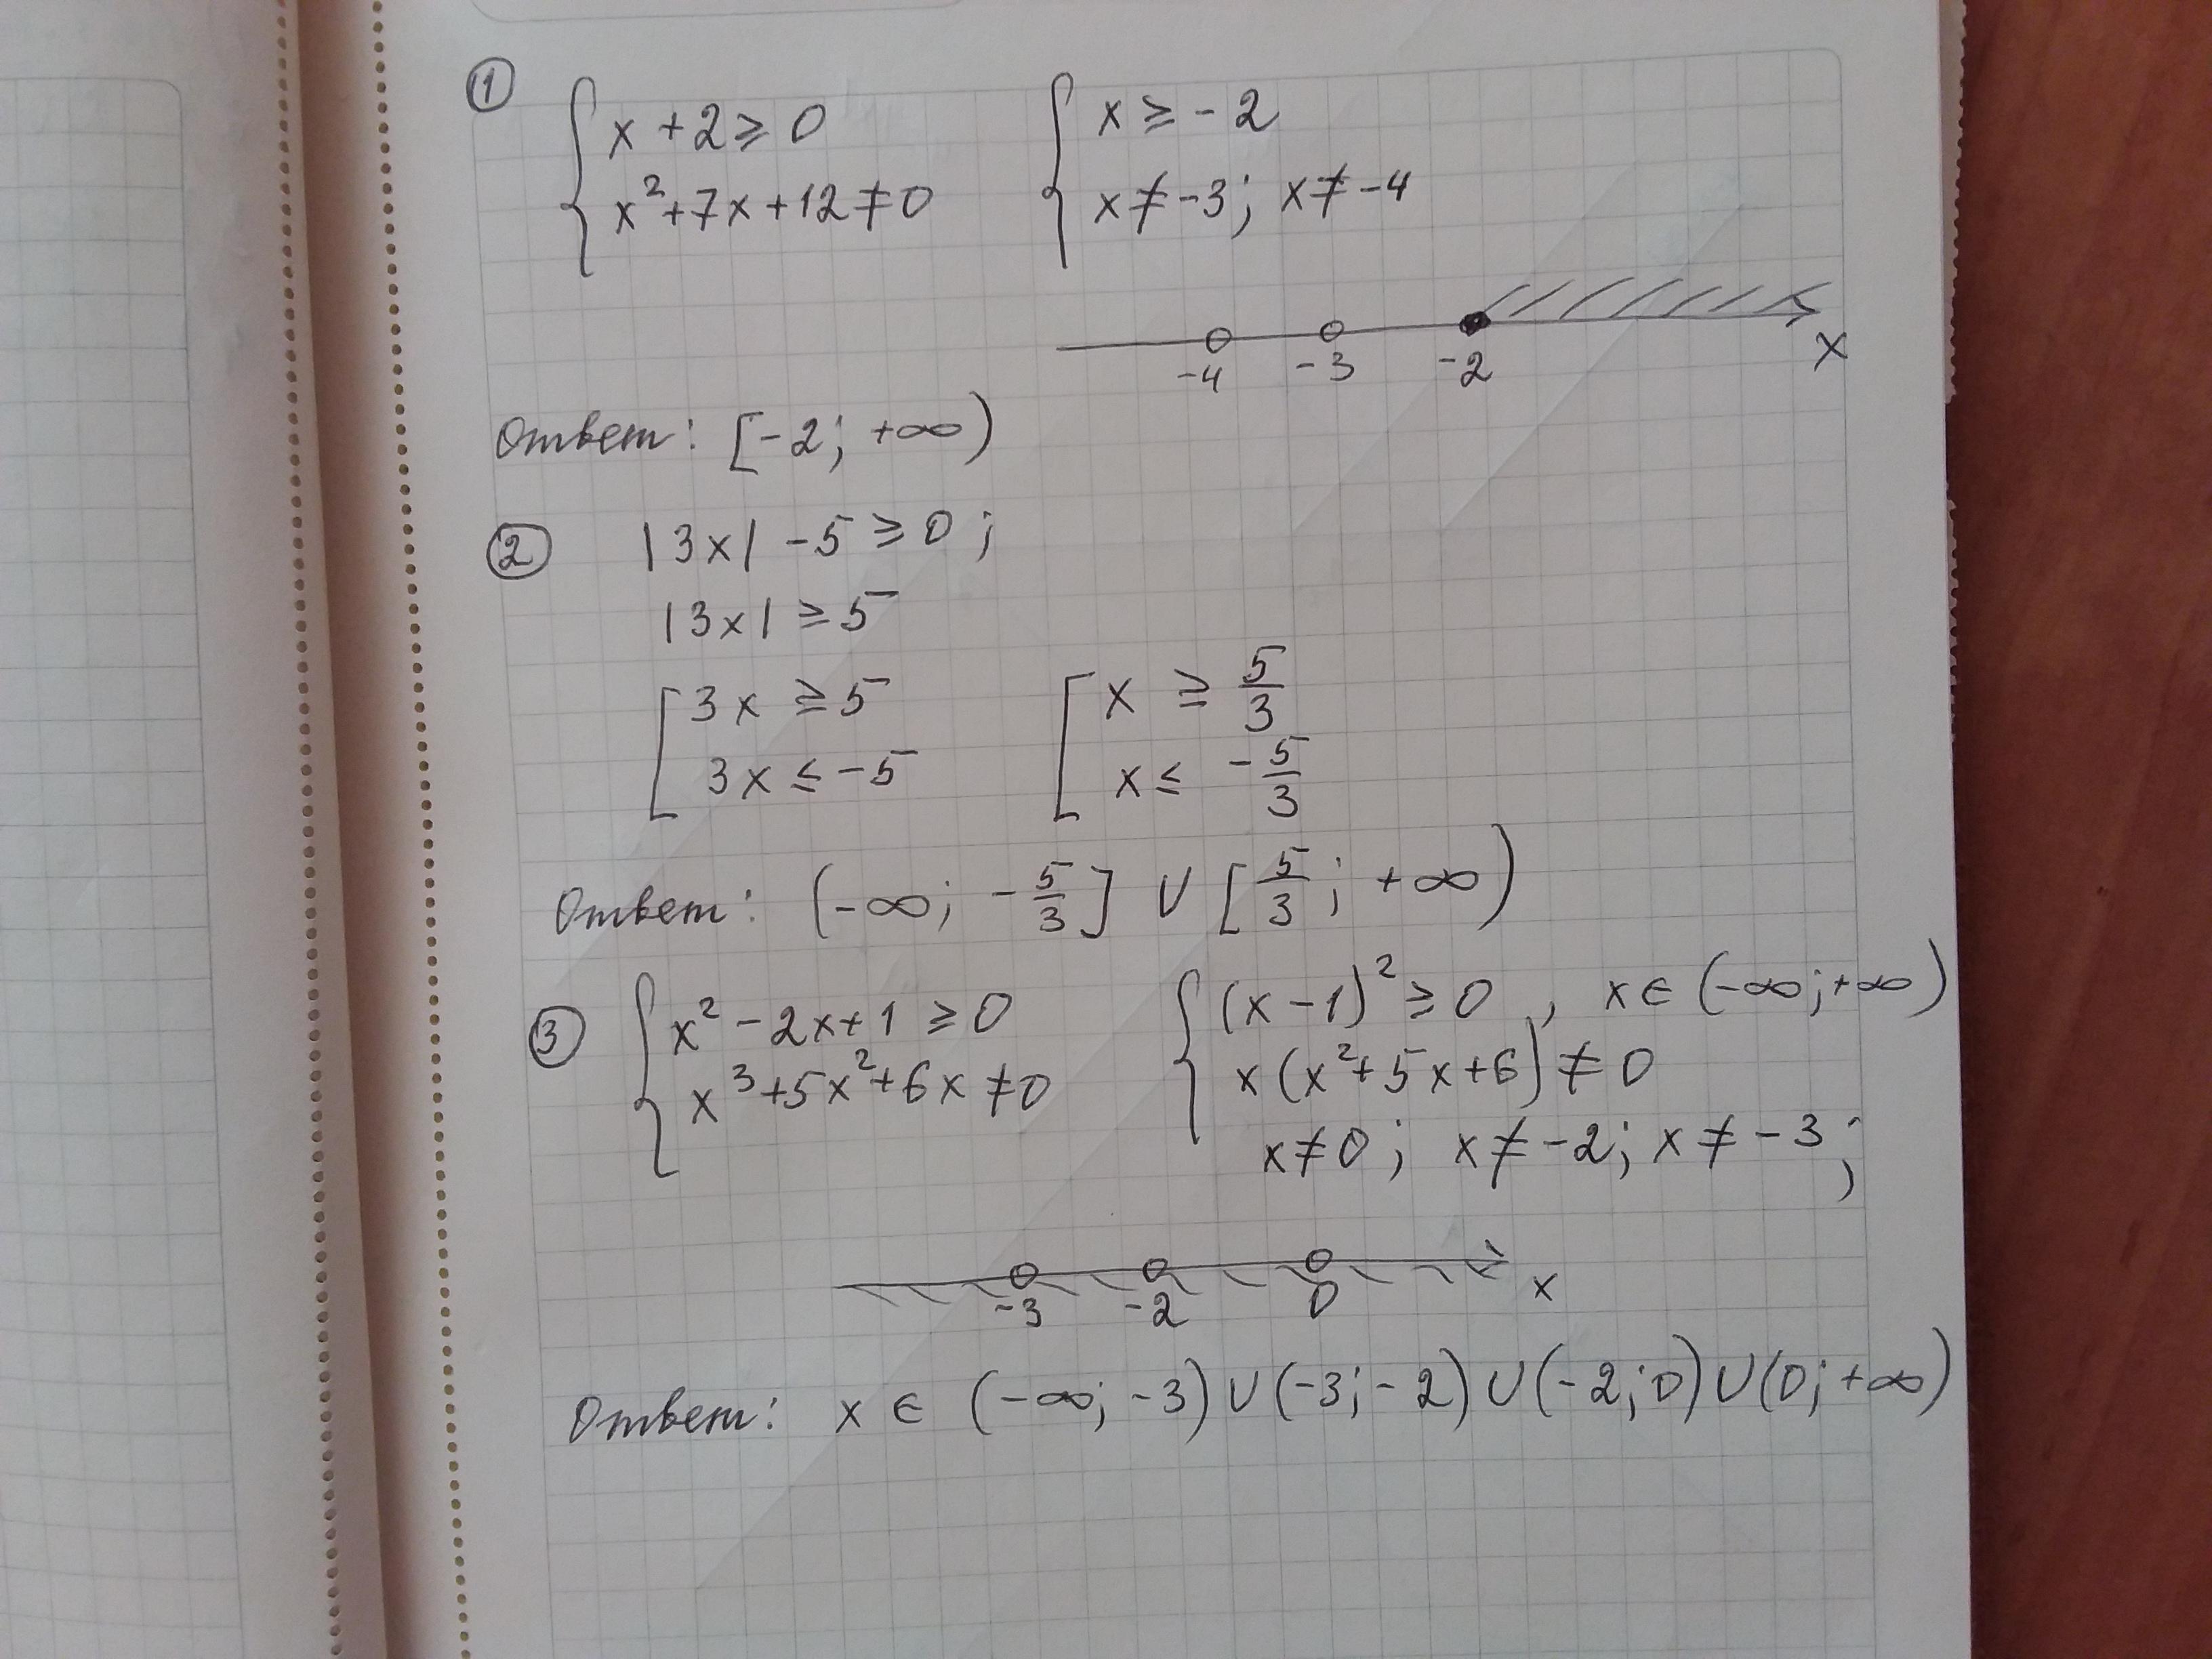 ① { x + 2 ≥ 0 { x ≥ -2
x² + 7x + 12 ≠ 0 x ≠ -3; x ≠ -4
-4 -3 -2 x
Ответ: [-2; +∞)
② |3x| - 5 ≥ 0;
|3x| ≥ 5
[ 3x ≥ 5 [ x ≥ 5/3
3x ≤ -5 x ≤ -5/3
Ответ: (-∞; -5/3] ∪ [5/3; +∞)
③ { x² - 2x + 1 ≥ 0 { (x - 1)² ≥ 0, x ∈ (-∞; +∞)
x³ + 5x² + 6x ≠ 0 x(x² + 5x + 6) ≠ 0
x ≠ 0; x ≠ -2; x ≠ -3;
-3 -2 0 x
Ответ: x ∈ (-∞; -3) ∪ (-3; -2) ∪ (-2; 0) ∪ (0; +∞)